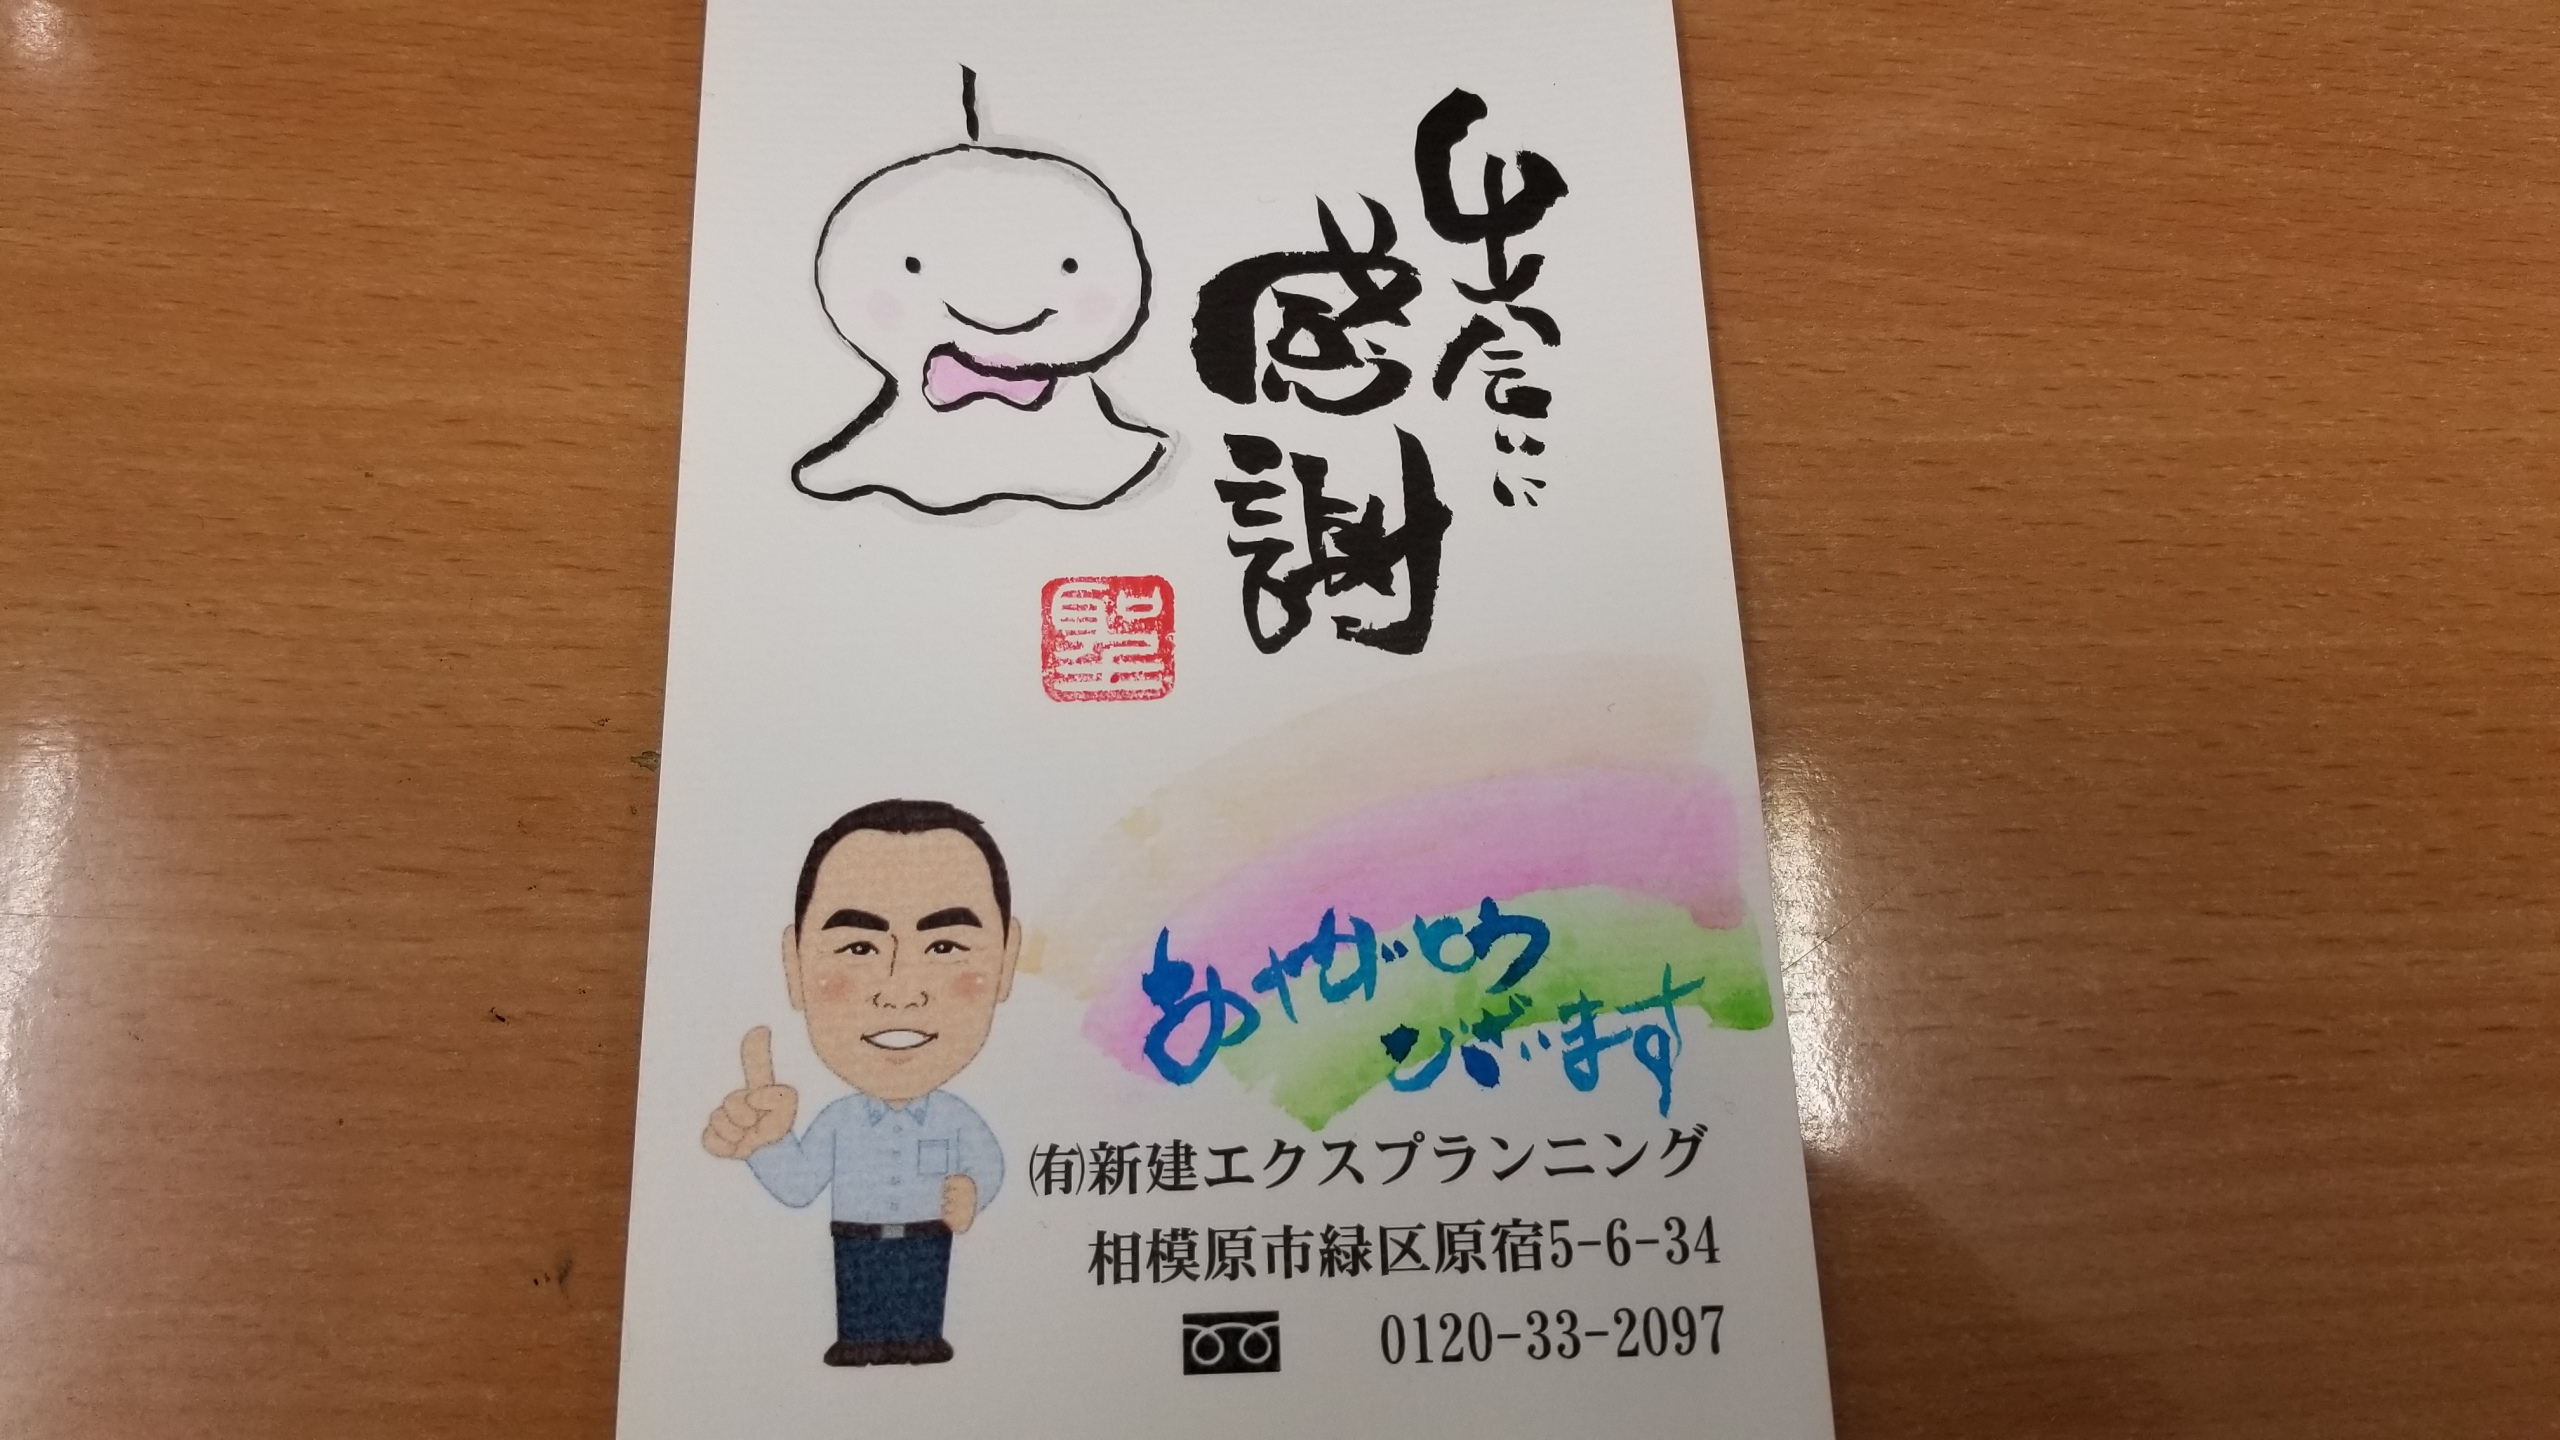 出会いに
感謝
聖
ありがとう
ございます
㈲新建エクスプランニング
相模原市緑区原宿5-6-34
0120-33-2097